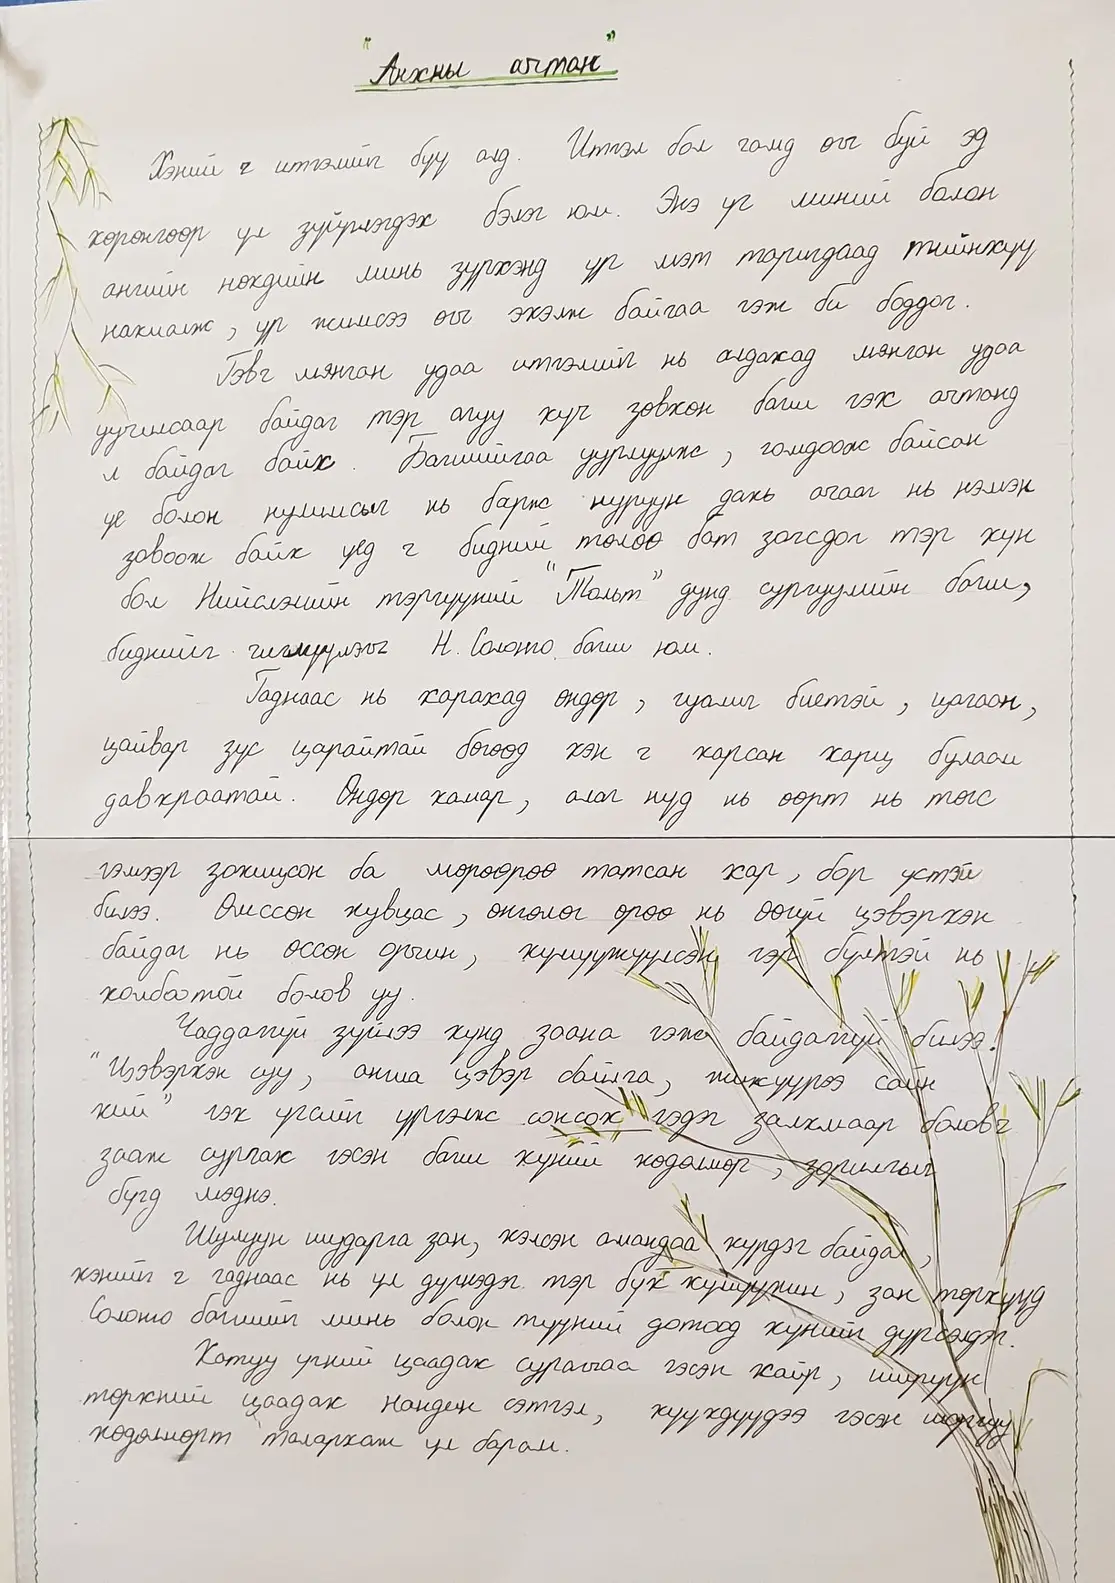 "Анхны ачтан"
Хэний ч итгэлийг буу алд. Итгэл бол чамд өгч буй эд
хөрөнгөөр үл зүйрлэгдэх бэлэг юм. Энэ үг миний болон
ангийн нөхдийн минь зүрхэнд үр мэт таригдаад тийнхүү
нахиалж, үр жимсээ өгч эхэлж байгаа гэж би боддог.
Гэвч мянган удаа итгэлийг нь алдахад мянган удаа
уучилсаар байдаг тэр агуу хүч зөвхөн багш гэх ачтанд
л байдаг байх. Багшийгаа уурлуулж, гомдоож байсан
үе болон нулимсыг нь барж нуруун дахь ачааг нь нэмэн
зовоож байх үед ч бидний төлөө бат зогсдог тэр хүн
бол Нийслэлийн тэргүүний "Тольт" дунд сургуулийн багш,
биднийг гийгүүлэгч Н. Солонго багш юм.
Гаднаас нь харахад өндөр, гуалиг биетэй, цагаан,
цайвар зүс царайтай бөгөөд хэн ч харсан харц булаам
давхраатай. Өндөр хамар, алаг нүд нь өөрт нь төгс
гэмээр зохицсон ба мөрөөрөө татсан хар, бор үстэй
билээ. Өмссөн хувцас, өнгөлөг өрөө нь өөгүй цэвэрхэн
байдаг нь өссөн орчин, хүмүүжүүлсэн гэр бүлтэй нь
холбоотой болов уу.
Чаддаггүй зүйлээ хүнд заана гэж байдаггүй билээ.
"Цэвэрхэн суу, ангиа цэвэр байлга, жижүүрээ сайн
хий" гэх үгсийг үргэлж сонсох гэдэг залхмаар боловч
зааж сургах гэсэн багш хүний хөдөлмөр, зорилгыг
бүгд мэднэ.
Шулуун шударга зан, хэлсэн амандаа хүрдэг байдал,
хэнийг ч гаднаас нь үл дүгнэдэг тэр бүх хүмүүжил, зан төрхүүд
Солонго багшийг минь болон түүний дотоод хүнийг дүрсэлдэг.
Хатуу үгний цаадах сурагчаа гэсэн хайр, ширүүн
төрхний цаадах нандин сэтгэл, хүүхдүүдээ гэсэн шаргуу
хөдөлмөрт талархаж үл барам.